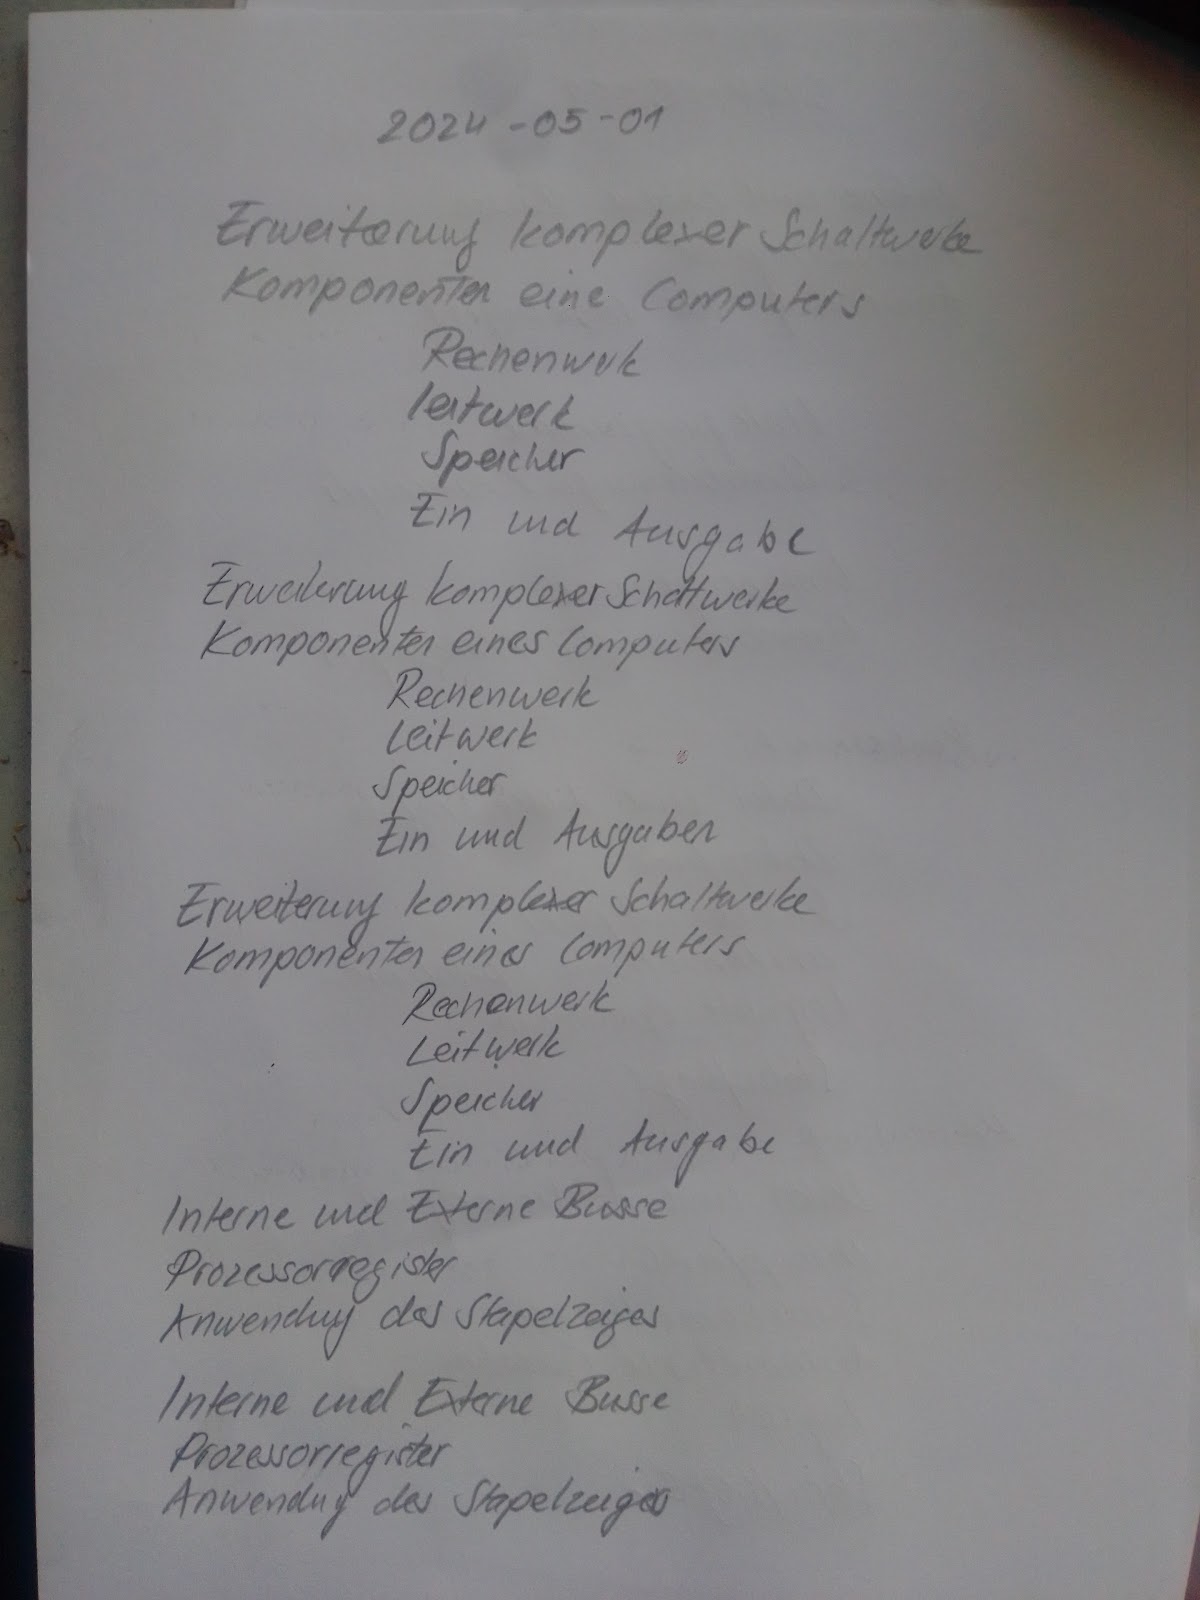 2024-05-01
Erweiterung komplexer Schaltwerke
Komponenten eine Computers
Rechenwerk
Leitwerk
Speicher
Ein und Ausgabe
Erweiterung komplexer Schaltwerke
Komponenten eines Computers
Rechenwerk
Leitwerk
Speicher
Ein und Ausgaben
Erweiterung komplexer Schaltwerke
Komponenten eines Computers
Rechenwerk
Leitwerk
Speicher
Ein und Ausgabe
Interne und Externe Busse
Prozessorregister
Anwendung des Stapelzeiges
Interne und Externe Busse
Prozessorregister
Anwendung des Stapelzeiges